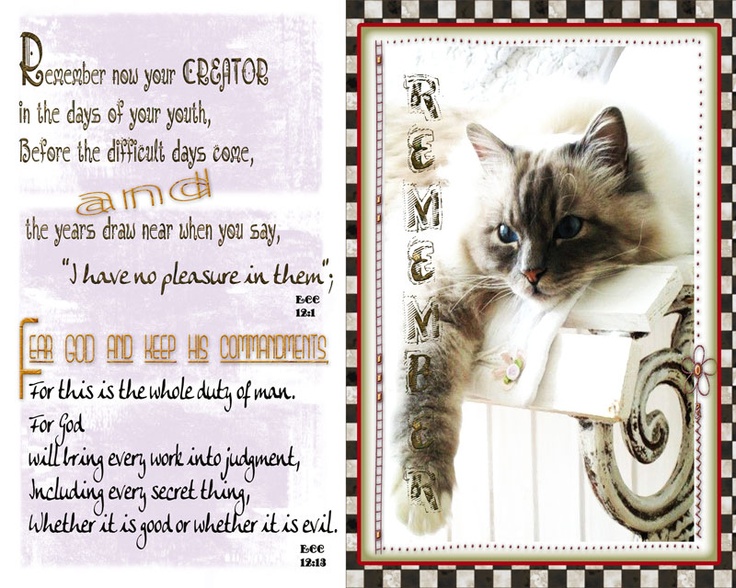 Remember now your CREATOR
in the days of your youth,
Before the difficult days come,
and
the years draw near when you say,
"I have no pleasure in them";
Ecc
12:1
Fear GOD AND KEEP HIS COMMANDMENTS
For this is the whole duty of man.
For God
will bring every work into judgment,
Including every secret thing,
Whether it is good or whether it is evil.
Ecc
12:13
REMEMBER